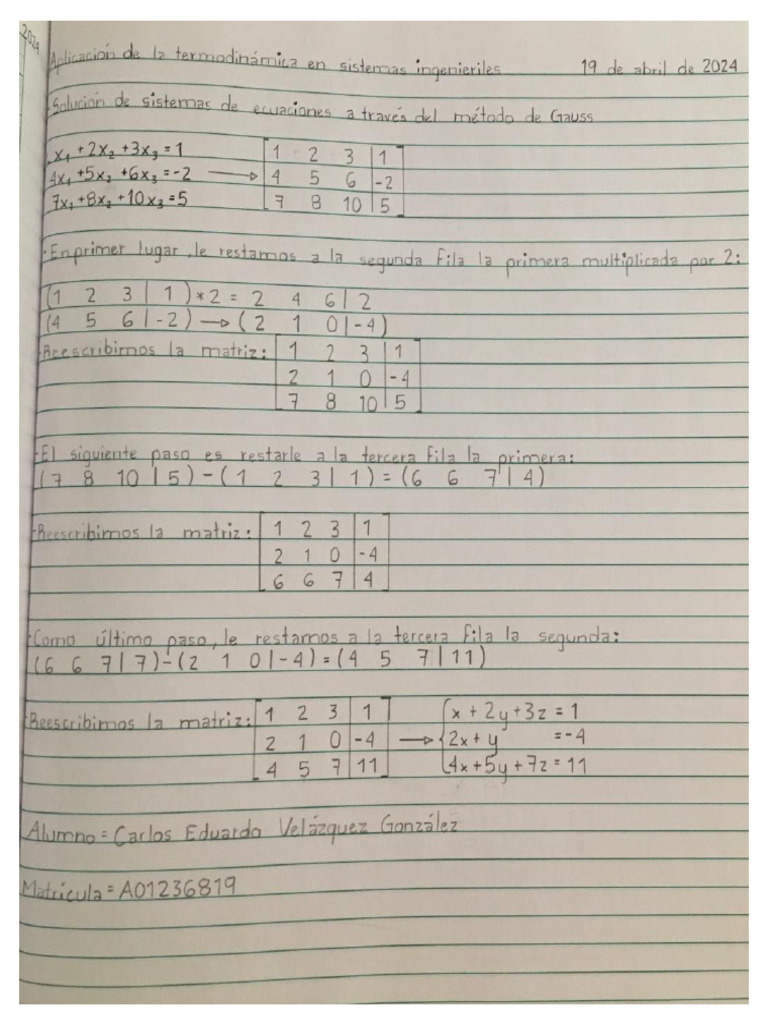 2024
Aplicación de la termodinámica en sistemas ingenieriles 19 de abril de 2024
·Solución de sistemas de ecuaciones a través del método de Gauss
x₁+2x₂+3x₃=1 [1 2 3 | 1]
4x₁+5x₂+6x₃=-2 → [4 5 6 | -2]
7x₁+8x₂+10x₃=5 [7 8 10 | 5]
·En primer lugar, le restamos a la segunda fila la primera multiplicada por 2:
(1 2 3 | 1)*2 = 2 4 6 | 2
(4 5 6 | -2) → (2 1 0 | -4)
·Reescribimos la matriz: [1 2 3 | 1]
[2 1 0 | -4]
[7 8 10 | 5]
·El siguiente paso es restarle a la tercera fila la primera:
(7 8 10 | 5) - (1 2 3 | 1) = (6 6 7 | 4)
·Reescribimos la matriz: [1 2 3 | 1]
[2 1 0 | -4]
[6 6 7 | 4]
·Como último paso, le restamos a la tercera fila la segunda:
(6 6 7 | 7) - (2 1 0 | -4) = (4 5 7 | 11)
Reescribimos la matriz: [1 2 3 | 1] {x + 2y + 3z = 1
[2 1 0 | -4] → {2x + y = -4
[4 5 7 | 11] {4x + 5y + 7z = 11
Alumno = Carlos Eduardo Velázquez González
Matrícula = A01236819